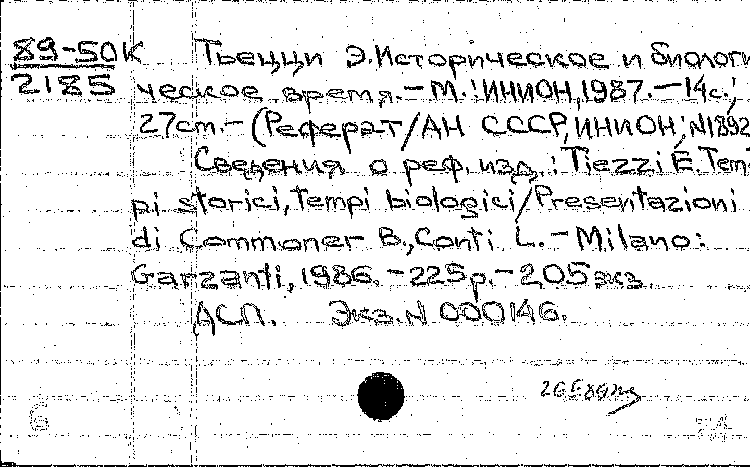 89-50К Тьецци Э. Историческое и биологи
2185 ческое время. – М.: ИНИОН, 1987. – 14с.;
27см. – (Реферат/АН СССР, ИНИОН; N1892
Сведения о реф. изд.: Tiezzi E. Tem
pi storici, tempi biologici/Presentazioni
di Commoner B., Conti L. – Milano:
Garzanti, 1986. – 225p. – 205 экз.
ДСП. Экз. N 000146.
6